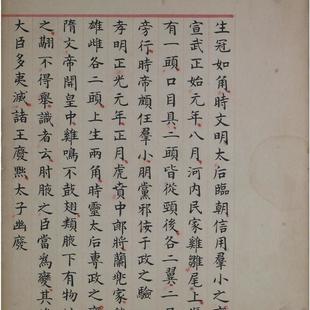 生冠如角時文明太后臨朝信用羣小之
宣武正始元年八月河内民家雞雛尾上
有一頭口目具二頭皆從頸後各二翼二
旁行時帝頗任羣小朋黨邪佞干政之驗
孝明正光元年正月虎賁中郎將蘭兜家
雄雌各二頭上生兩角時靈太后專政之
隋文帝開皇中雞鳴不鼓翅類腋下有物
之翮不得舉識者云肘腋之臣當為變其
大臣多夷滅諸王廢黜太子幽廢